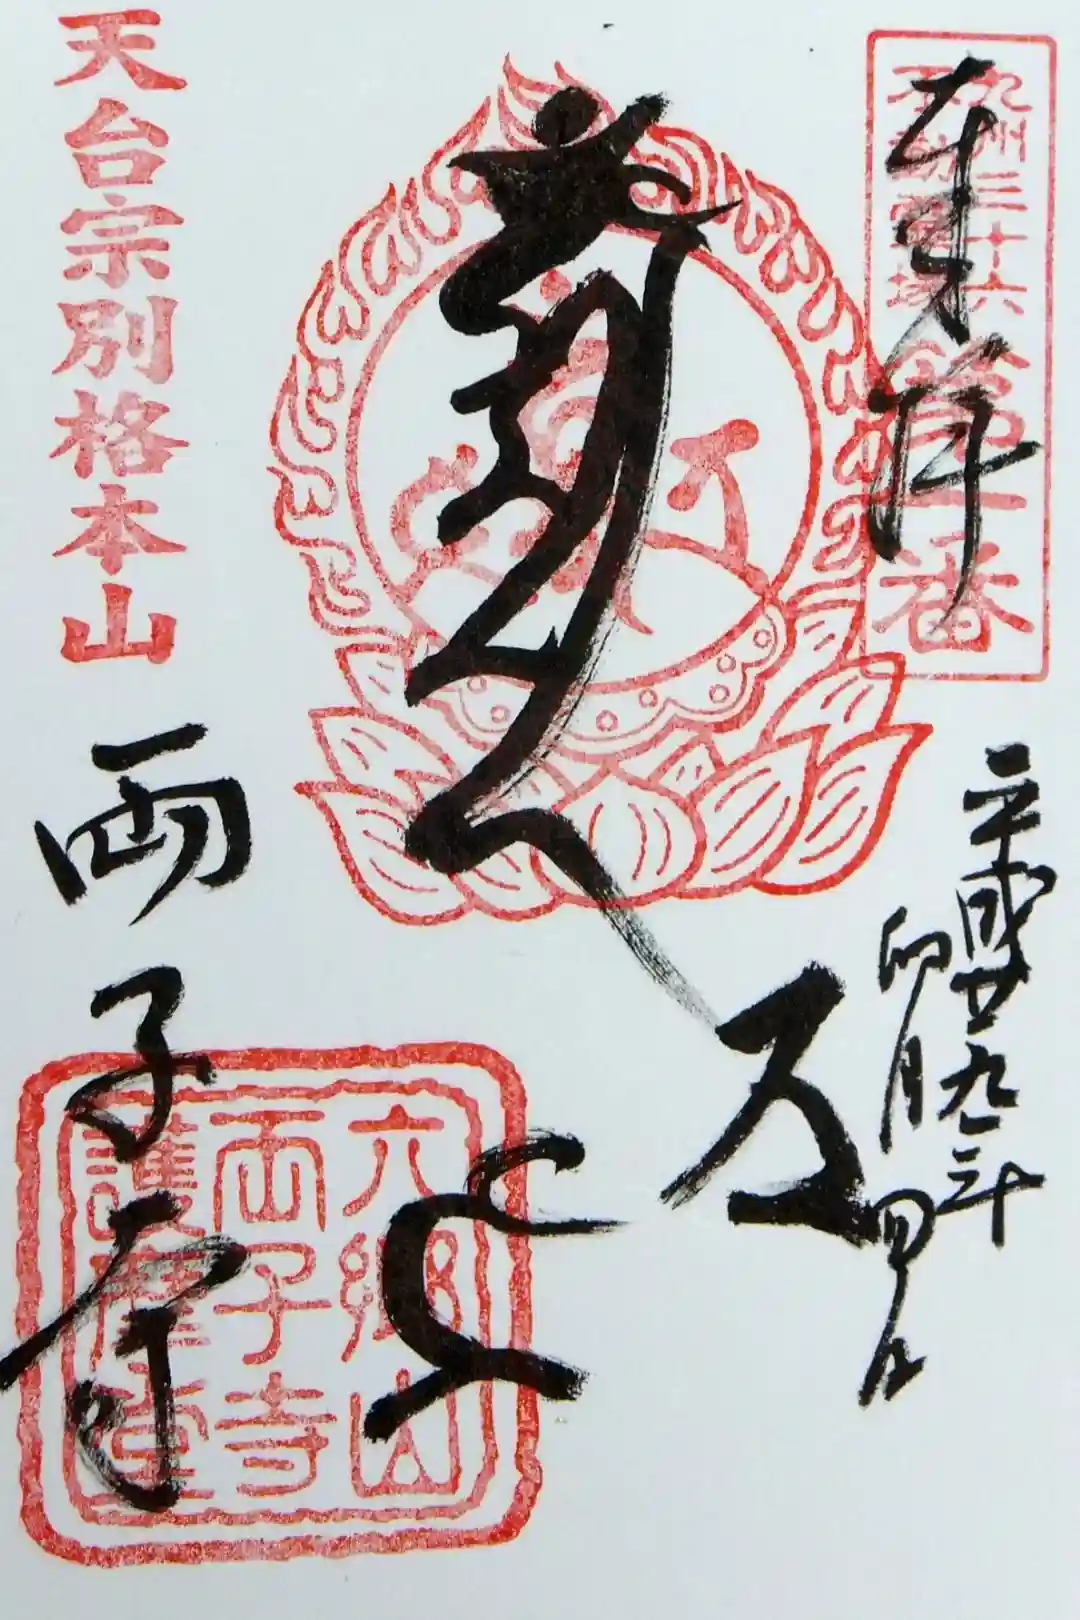 九州三十六
不動霊場
第一番
奉拝
平成廿九年
卯月四日
天台宗別格本山
両子寺
六郷山
両子寺
護摩堂